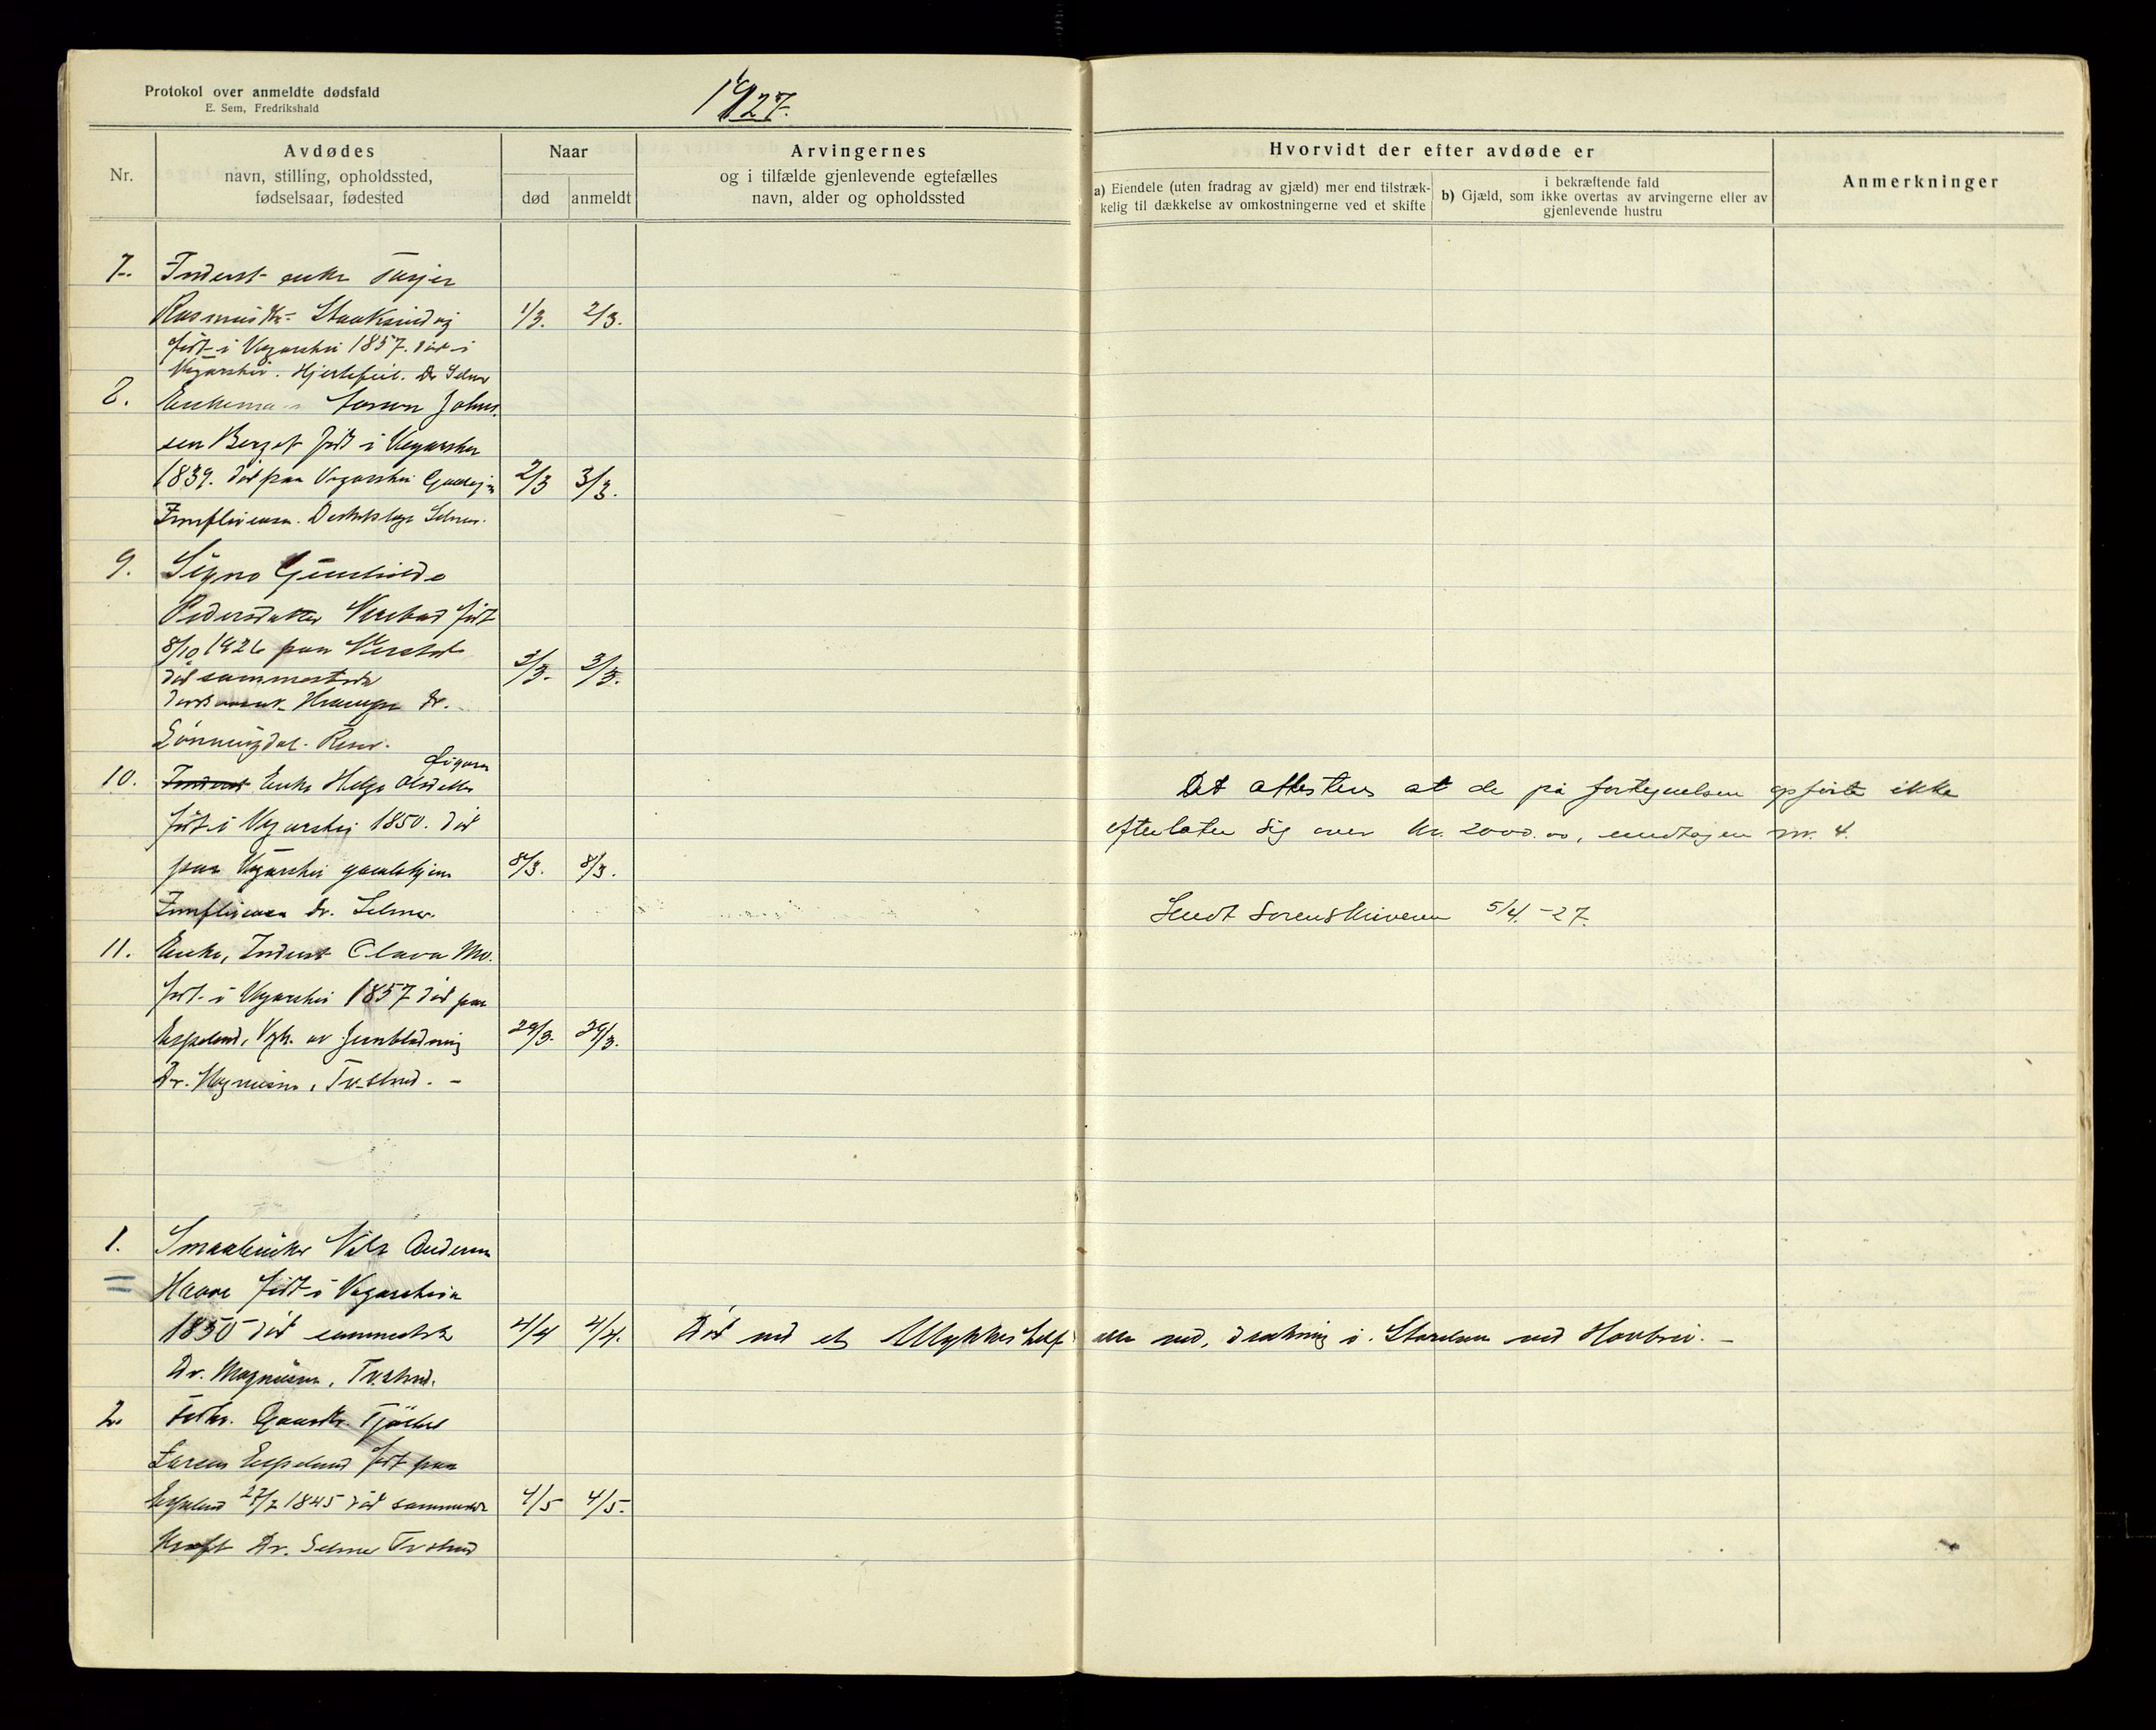 Protokol over anmeldte dødsfald
E. Sem, Fredrikshald
1927.
Nr.
Avdødes
navn, stilling, opholdssted,
fødselsaar, fødested
Naar
død
anmeldt
Arvingernes
og i tilfælde gjenlevende egtefælles
navn, alder og opholdssted
Hvorvidt der efter avdøde er
a) Eiendele (uten fradrag av gjæld) mer end tilstræk-
kelig til dækkelse av omkostningerne ved et skifte
i bekræftende fald
b) Gjæld, som ikke overtas av arvingerne eller av
gjenlevende hustru
Anmerkninger
7. Inderst enke Tarjer
1/3. 2/3.
født i Vegarshei 1857. død i
Vegarshei. Hjertefeil. Dr Selmer
8. Enkema Johns
sen Berget født i Vegarshei
1839. død paa Vegarshei 2/3 3/3.
Influensa. Selmer.
9. Signe Gunhilde
Pedersdatter født
8/10 1926 paa 3/3. 3/3.
død sammesteds
dr.
10. Inderst Enke Helge Olsdatter
født i Vegarshei 1850. død
paa Vegarshei gamlehjem 8/3. 8/3.
Influensa dr. Selmer.
Det attesteres at de på fortegnelsen opførte ikke
efterlater sig over kr. 2000.00, undtagen nr. 4.
Sendt Sorenskriveren 5/4.-27.
11. Enke, Inderst Olava Mo.
født i Vegarshei 1857 død paa
Espeland, Vgh. av 29/3. 29/3.
Dr. Magnusen, Tvedestrand. -
1. Smaabruker Nils Andersen
Haave født i Vegarshei
1850 død sammesteds 4/4 4/4. Død ved et Ulykkestilfælde ved, drukning i ved
Dr. Magnusen, Tvestrand.
2.
Larsen Espeland født paa
Espeland 27/2 1845 død sammesteds 4/5 4/5.
Kræft Dr. Selmer Tvestrand